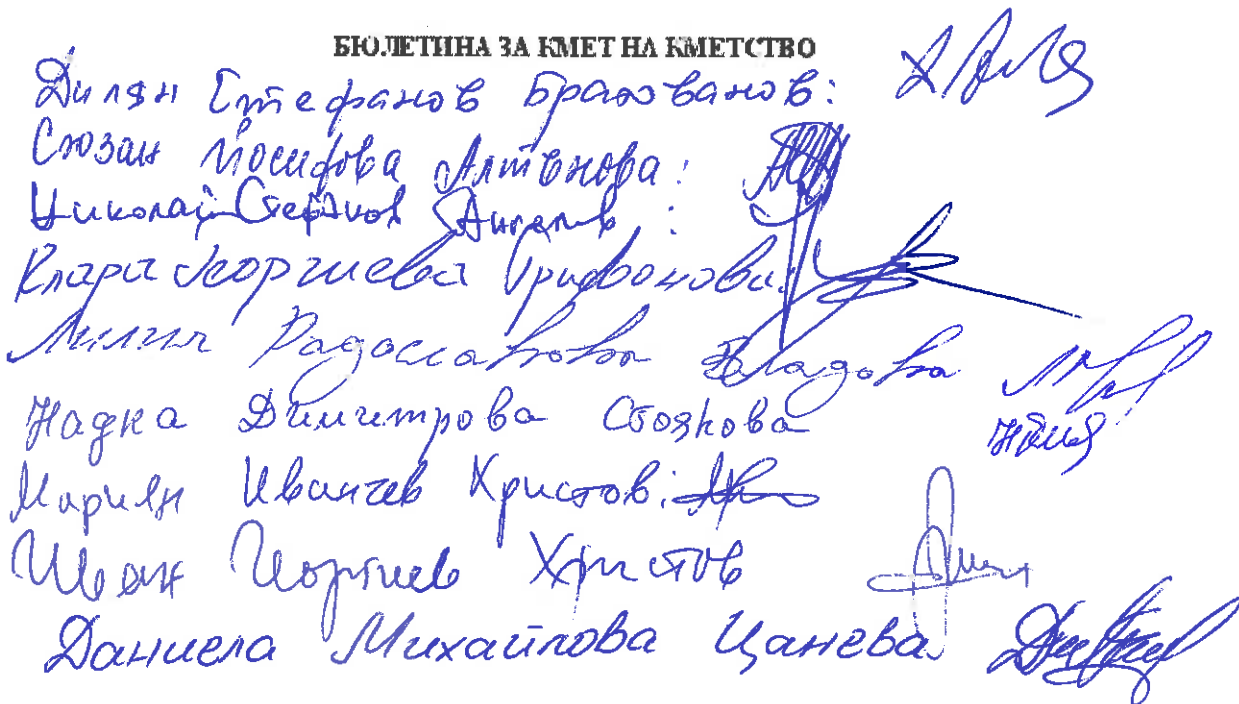 БЮЛЕТИНА ЗА КМЕТ НА КМЕТСТВО
Дилян Стефанов Брахованов:
Сюзан Йосифова Алтънова:
Николай Стефанов Ангелов :
Клара Георгиева Трифонова:
Лилия Радославова Владова
Надка Димитрова Стоянова
Мариян Иванчев Христов:
Иван Георгиев Христов
Даниела Михайлова Цанева